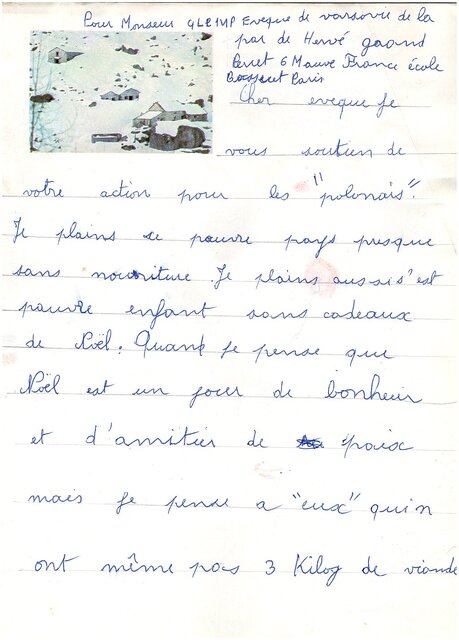 Pour Monseur GLEMP Eveque de varsovie de la
par de Hervé
6 Mauve France école
Bossuet Paris
Cher eveque je
vous soutien de
votre action pour les "polonais".
Je plains se pauvre pays presque
sans nourriture. Je plains aussi s'est
pauvre enfant sans cadeaux
de Noël. Quand je pense que
Noël est un jour de bonheur
et d'amitier de paix
mais je pense a "eux" qui n
ont même pas 3 Kilog de viande